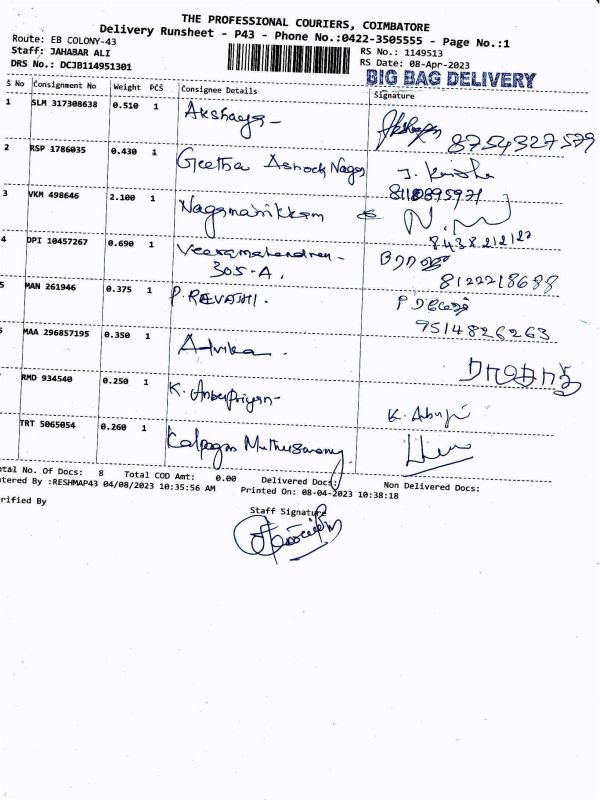 THE PROFESSIONAL COURIERS, COIMBATORE
Delivery Runsheet - P43 - Phone No.:0422-3505555 - Page No.:1
Route: EB COLONY-43
RS No.: 1149513
Staff: JAHABAR ALI
RS Date: 08-Apr-2023
DRS No.: DCJB114951301
BIG BAG DELIVERY
S No Consignment No Weight PCS Consignee Details Signature
1 SLM 317308638 0.510 1 Akshaya 8754327579
2 RSP 1786035 0.430 1 Geetha Ashock Nagar
8110895971
3 VKM 498646 2.100 1 Nagamanikkam
8438212120
4 DPI 10457267 0.690 1 Veeramahendran
305-A. 8122218688
5 MAN 261946 0.375 1 P. REVATHI.
9514826263
MAA 296857195 0.350 1 Advika.
RMD 934540 0.250 1 K. Anbupriyan
TRT 5065054 0.260 1 Kalpagam Muthusamy
otal No. Of Docs: 8 Total COD Amt: 0.00 Delivered Docs: Non Delivered Docs:
tered By :RESHMAP43 04/08/2023 10:35:56 AM Printed On: 08-04-2023 10:38:18
erified By
Staff Signature